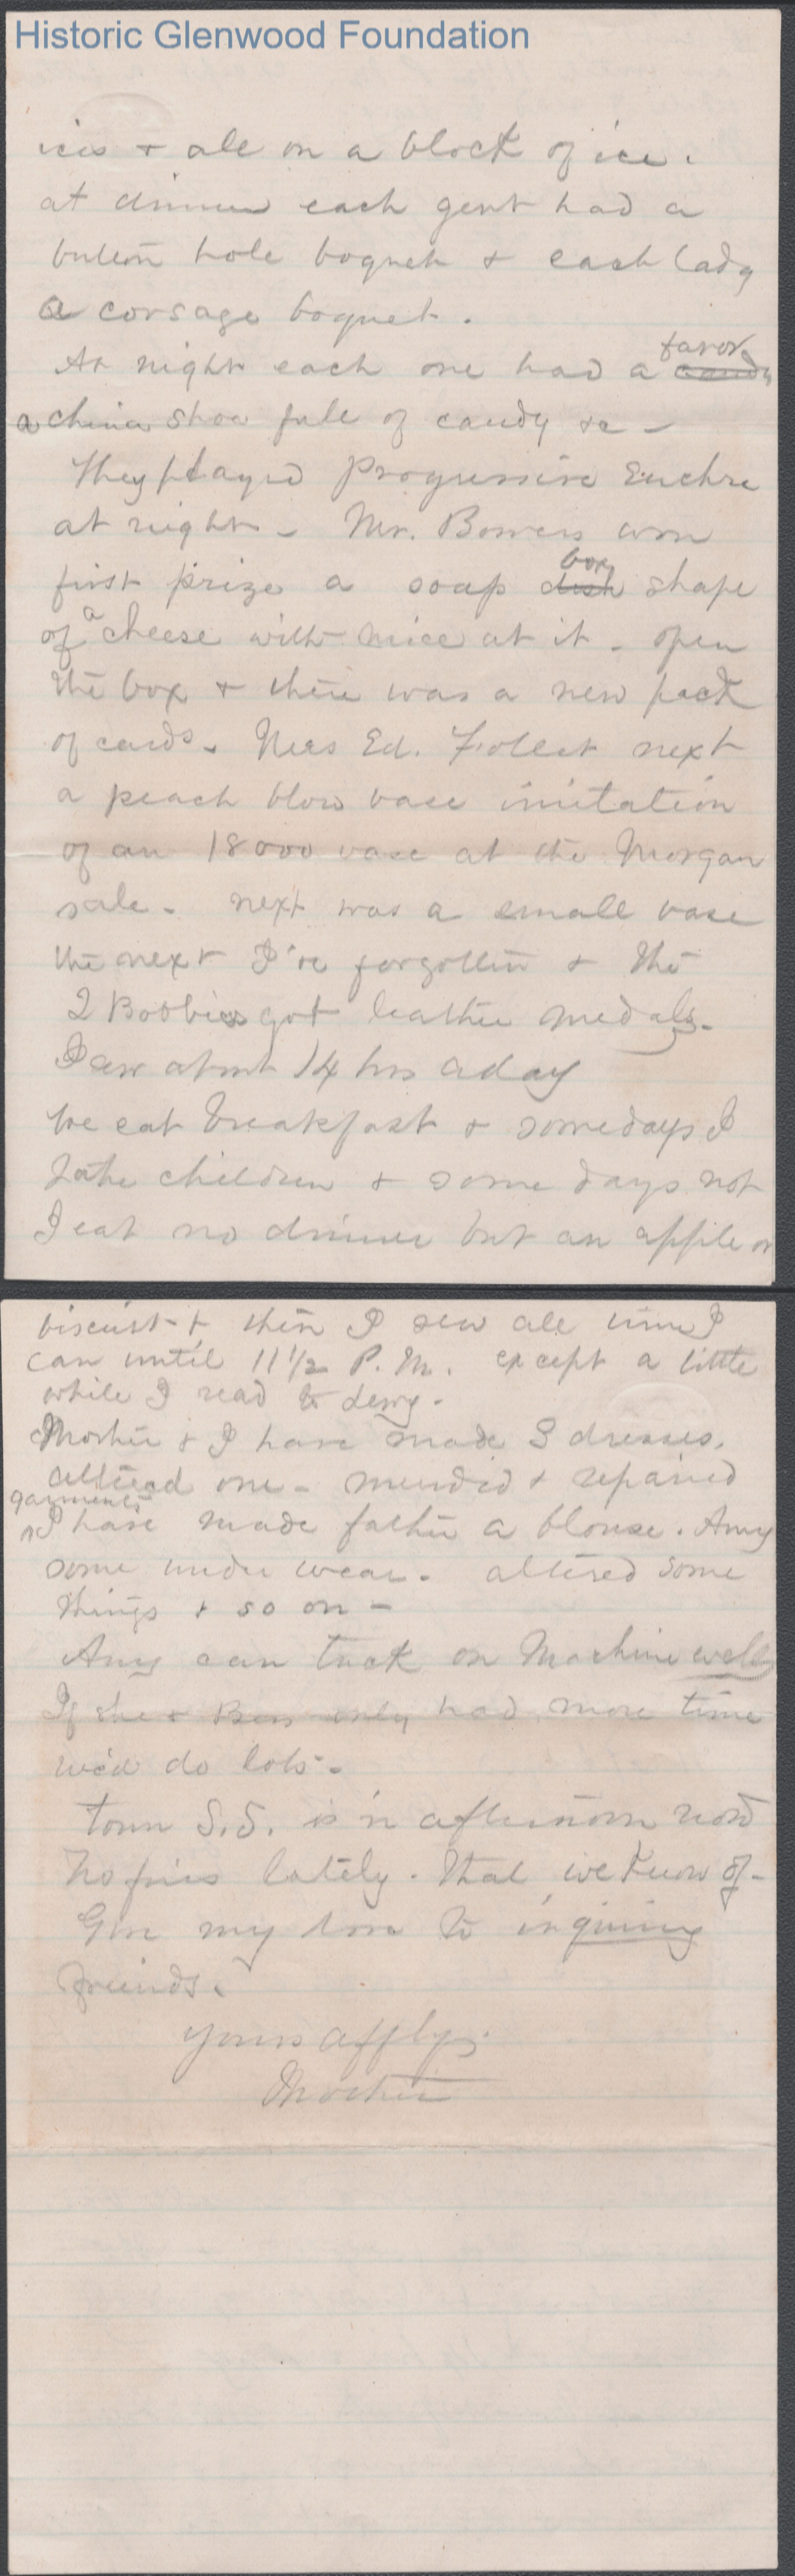 Historic Glenwood Foundation
ices & all on a block of ice.
at dinner each gent had a
button hole boquet & each lady
a corsage boquet.
At night each one had a candy favor
a china shoe full of candy &c –
They played Progressive Euchre
at night – Mr. Bowers won
first prize a soap dish box shape
of a cheese with mice at it – open
the box & there was a new pack
of cards. Miss Ed. Follett next
a peach blow vase imitation
of an 18000 vase at the Morgan
sale – next was a small vase
the next I've forgotten & the
2 Boobies got leather medals –
I sew about 14 hrs a day
we eat breakfast & some days I
children & some days not
I eat no dinner but an apple or
biscuit & then I sew all time I
can until 11 1/2 P.M. except a little
while I read to
Mother & I have made 3 dresses.
altered one – mended & repaired
garments
I have made father a blouse. Amy
some under wear – altered some
things & so on –
Amy can tuck on Machine well
If she & Bess only had more time
we'd do lots –
Town S.S. is in afternoon now
No fires lately. that we know of –
Give my love to inquiring
friends.
Yours affly,
Mother